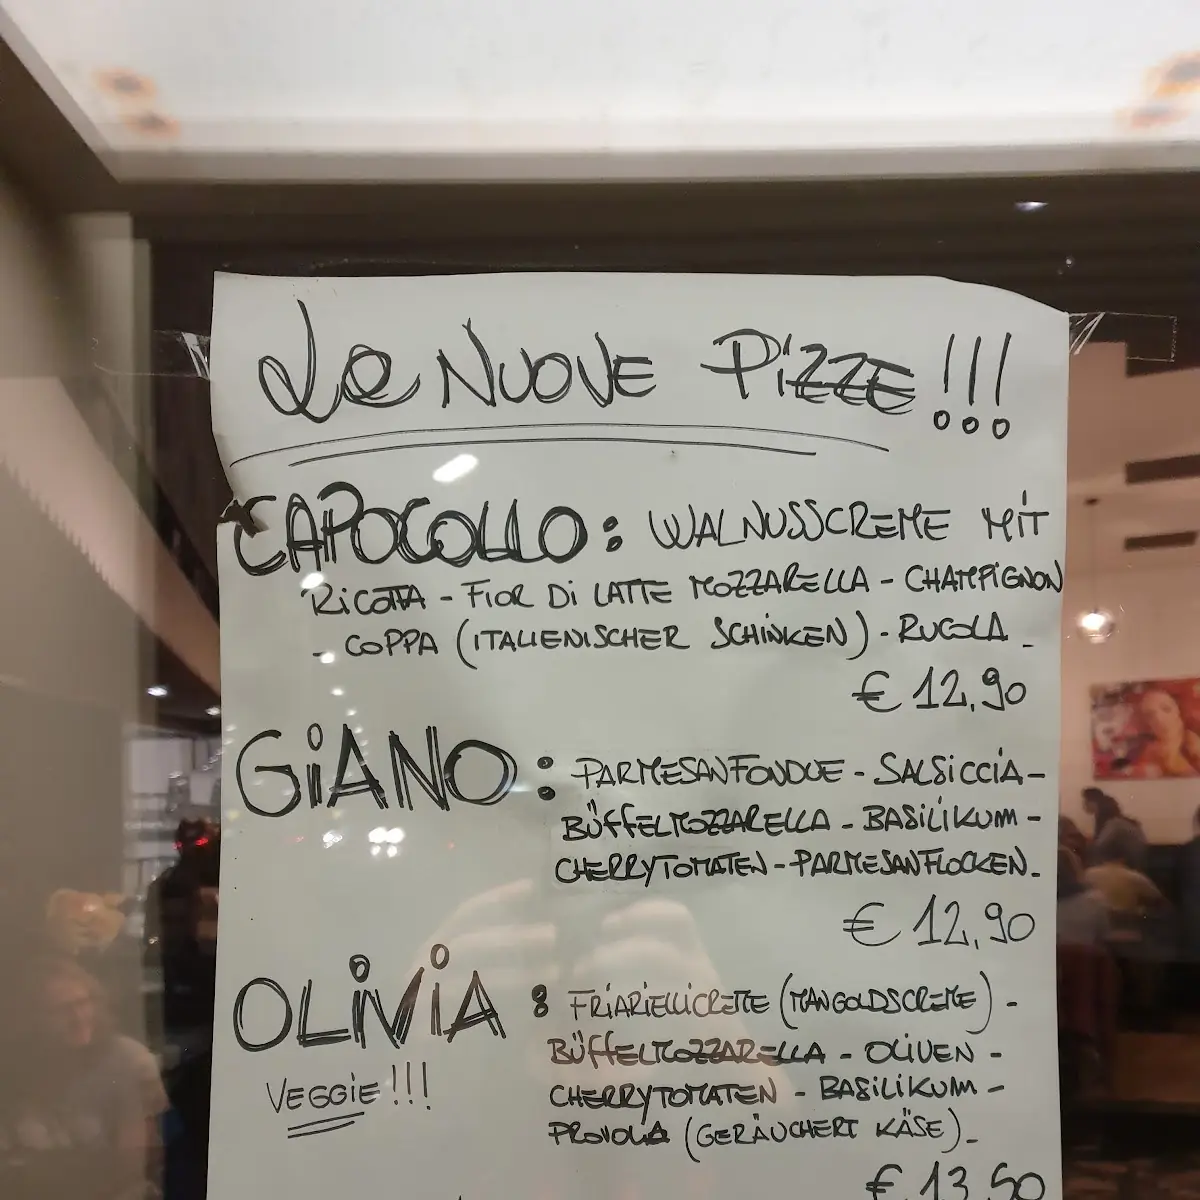 Le NUOVE PiZZE!!!
CAPOCOLLO: WALNUSSCREME MIT
RiCOTTA - FIOR Di LATTE MOZZARELLA - CHAMPiGNON
- COPPA (ITALIENISCHER SCHiNKEN) - RUCOLA -
€ 12,90
GiANO: PARMESANFONDUE - SALSiCCiA -
BÜFFELMOZZARELLA - BASiLiKUM -
CHERRYTOMATEN - PARMESANFLOCKEN -
€ 12,90
OLiViA: FRiARiELLiCREME (MANGOLDSCREME) -
VEGGiE!!!
BÜFFELMOZZARELLA - OLiVEN -
CHERRYTOMATEN - BASiLiKUM -
PROVOLA (GERÄUCHERT KÄSE) -
€ 13,50